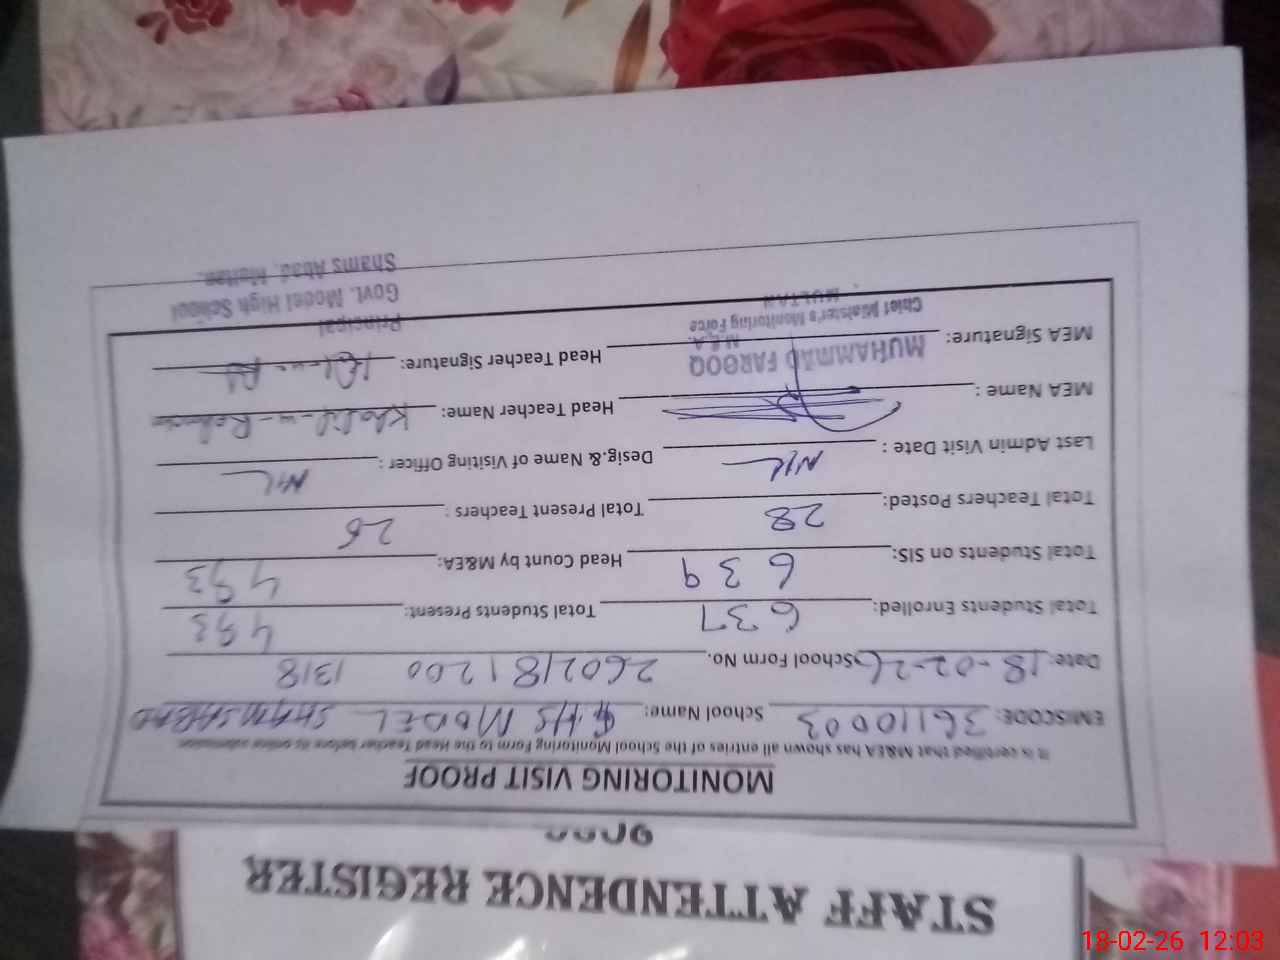 MONITORING VISIT PROOF
It is certified that M&EA has shown all entries of the School Monitoring Form to the Head Teacher before its online submission
EMISCODE: 36110003 School Name: G.HS MODEL SHAMSABAD
Date: 18-02-26 School Form No. 2602181200 1318
Total Students Enrolled: 637 Total Students Present: 493
Total Students on SIS: 639 Head Count by M&EA: 493
Total Teachers Posted: 28 Total Present Teachers: 26
Last Admin Visit Date: NIL Desig.& Name of Visiting Officer: NIL
MEA Name: Head Teacher Name: Khalil-u-Rehman
MEA Signature: Head Teacher Signature:
MUHAMMAD FAROOQ
M.E.A.
Chief Minister's Monitoring Force
MULTAN
Principal
Govt. Model High School
Shams Abad, Multan.
STAFF ATTENDENCE REGISTER
18-02-26 12:03